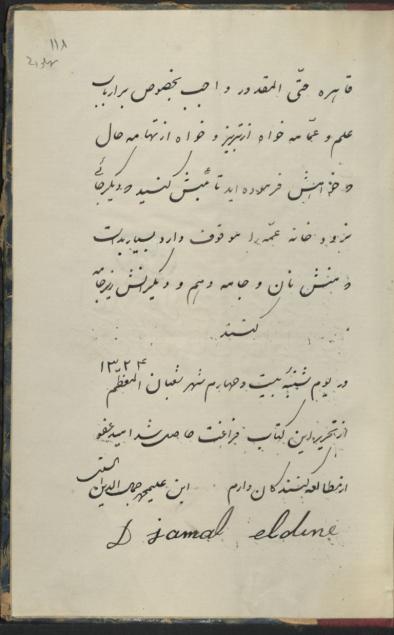 ۱۱۸
قاهره حتّی المقدور واجب بخصوص بر ارباب
علم و عمّامه خواه از تبریز و خواه از تهامه حال
خواهش فرموده‌اید تا کنید و دیگر جائی
نرود و خانه عمّه را موقوف دارد بسیار بد است
منش نان و جامه دهم و دیگرانش
کنند
در یوم شنبه بیست و چهارم شهر شعبان المعظّم ۱۳۲۴
از تحریر این کتاب فراغت حاصل شد امید عفو
از مطالعه کنندکان دارم ابن جمال الدین
Djamal eldine